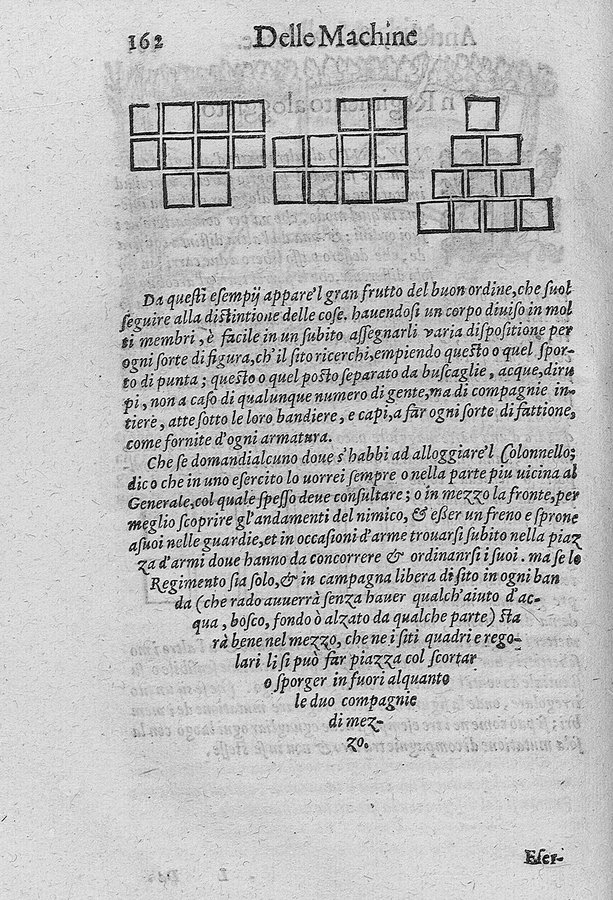 162
Delle Machine
Da questi esempij appare'l gran frutto del buon ordine, che suol
seguire alla distintione delle cose. hauendosi un corpo diuiso in mol
ti membri, è facile in un subito assegnarli varia dispositione per
ogni sorte di figura, ch'il sito ricerchi, empiendo questo o quel spor-
to di punta; questo o quel posto separato da buscaglie, acque, diru
pi, non a caso di qualunque numero di gente, ma di compagnie in-
tiere, atte sotto le loro bandiere, e capi, a far ogni sorte di fattione,
come fornite d'ogni armatura.
Che se domandi alcuno doue s'habbi ad alloggiare'l Colonnello;
dico che in uno esercito lo uorrei sempre o nella parte piu uicina al
Generale, col quale spesso deue consultare; o in mezzo la fronte, per
meglio scoprire gl'andamenti del nimico, & esser un freno e sprone
a suoi nelle guardie, et in occasioni d'arme trouarsi subito nella piaz
za d'armi doue hanno da concorrere & ordinanrsi i suoi. ma se le
Regimento sia solo, & in campagna libera di sito in ogni ban
da (che rado auuerrà senza hauer qualch'aiuto d'ac-
qua, bosco, fondo ò alzato da qualche parte) sta
rà bene nel mezzo, che ne i siti quadri e rego-
lari li si può far piazza col scortar
o sporger in fuori alquanto
le duo compagnie
di mez-
zo.
Eser-